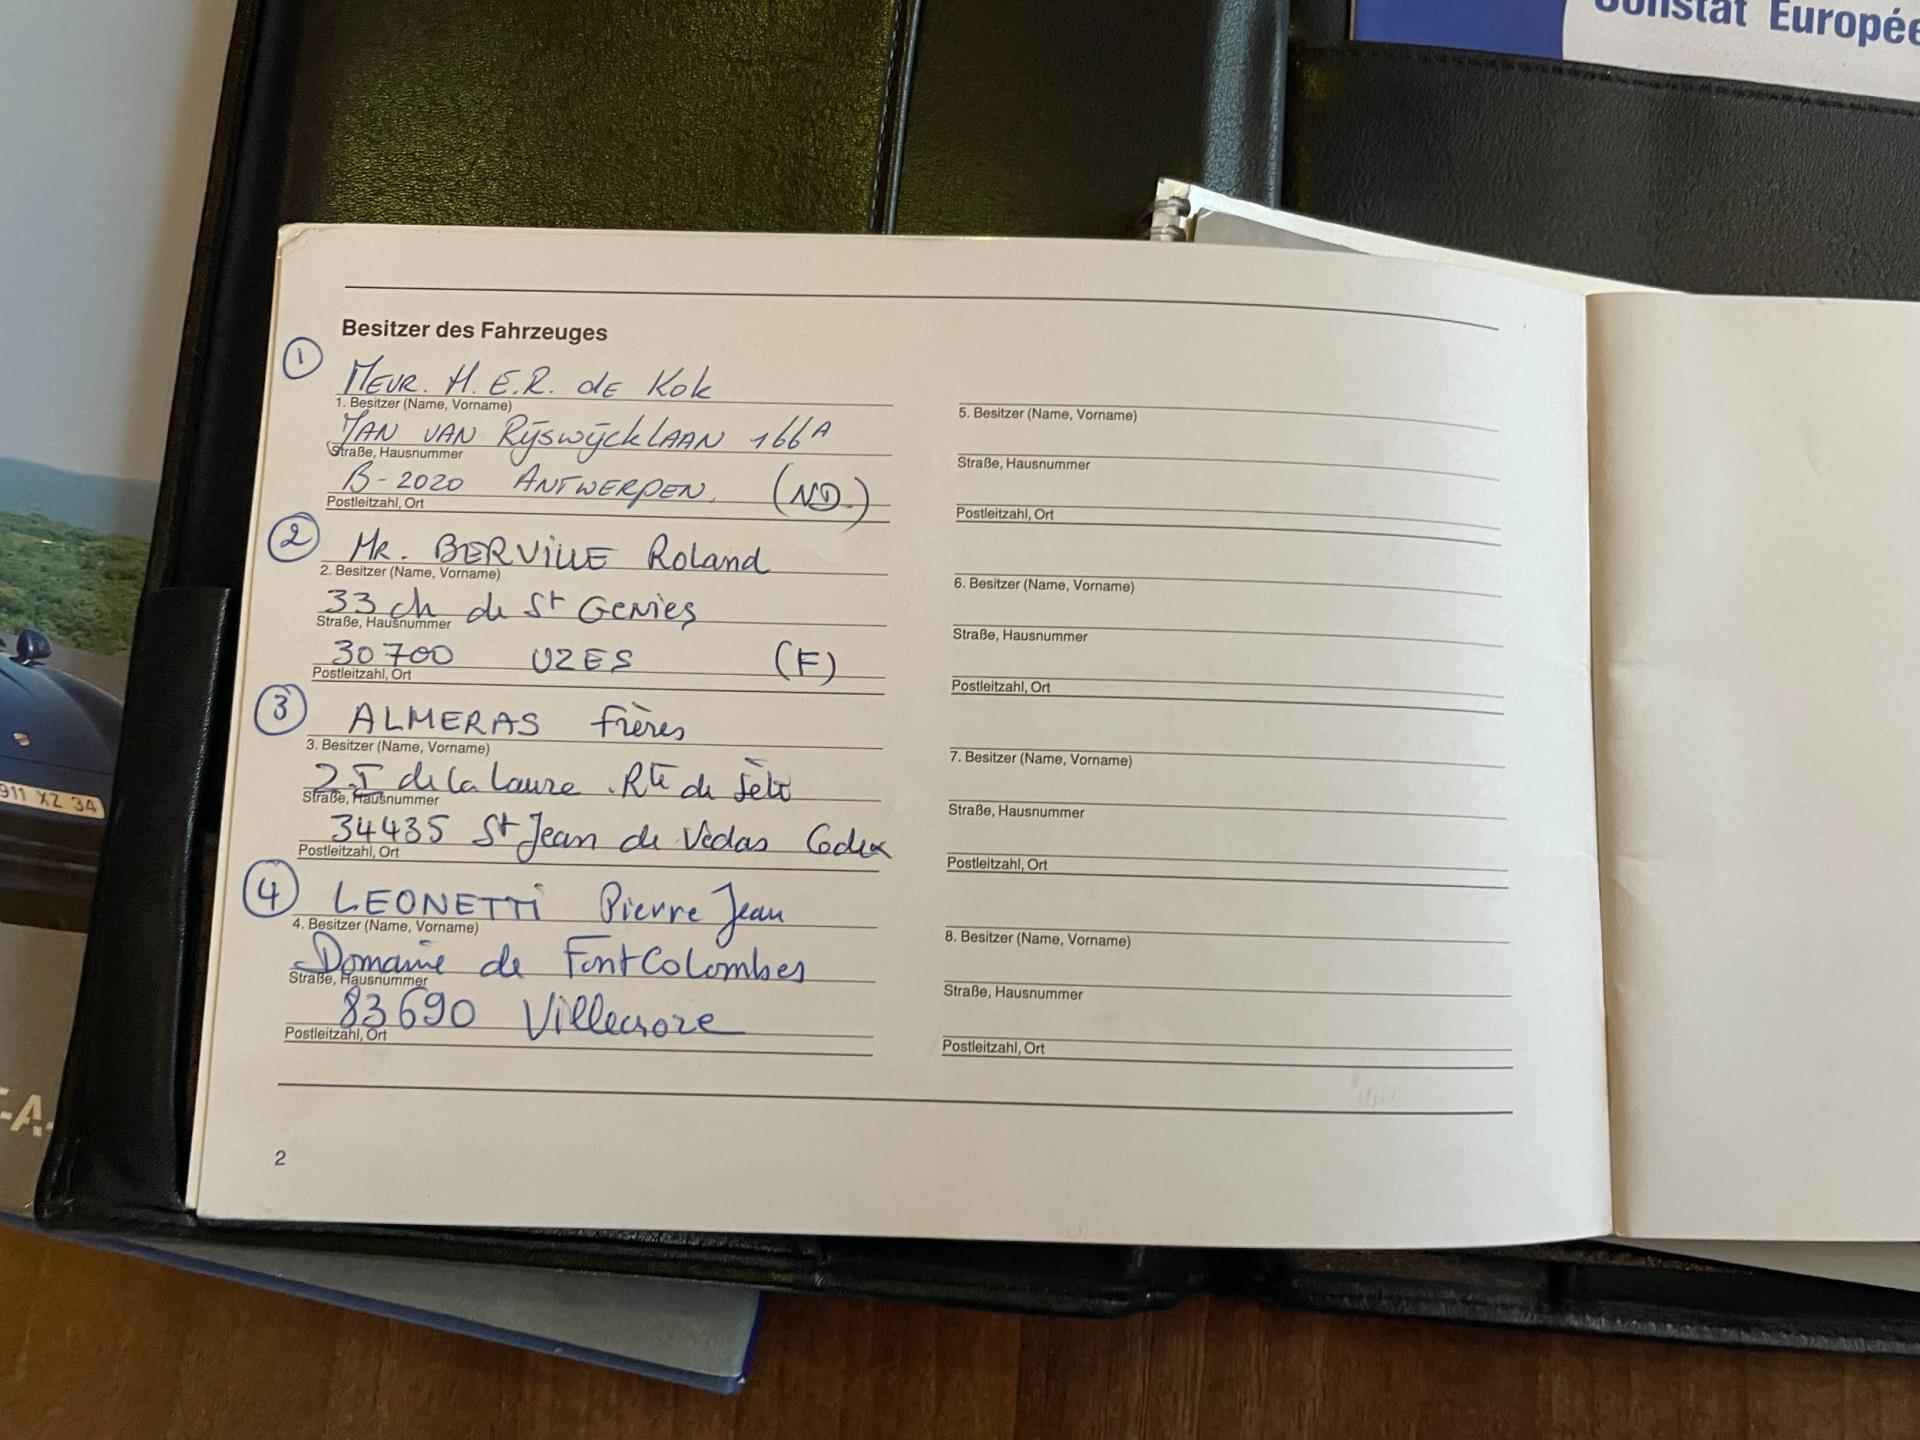 Constat Européen
Besitzer des Fahrzeuges
1
MEUR. H. E.R. de Kok
1. Besitzer (Name, Vorname)
JAN VAN RijswijckLAAN 166A
Straße, Hausnummer
B-2020 ANTWERPEN. (ND.)
Postleitzahl, Ort
2
MR. BERVILLE Roland
2. Besitzer (Name, Vorname)
33 ch de St Genies
Straße, Hausnummer
30700 UZES (F)
Postleitzahl, Ort
3
ALMERAS frères
3. Besitzer (Name, Vorname)
de la Lauze . Rte de Sète
Straße, Hausnummer
34435 St Jean de Vedas Cedex
Postleitzahl, Ort
4
LEONETTI Pierre Jean
4. Besitzer (Name, Vorname)
Domaine de FontColombes
Straße, Hausnummer
83690 Villecroze
Postleitzahl, Ort
5. Besitzer (Name, Vorname)
Straße, Hausnummer
Postleitzahl, Ort
6. Besitzer (Name, Vorname)
Straße, Hausnummer
Postleitzahl, Ort
7. Besitzer (Name, Vorname)
Straße, Hausnummer
Postleitzahl, Ort
8. Besitzer (Name, Vorname)
Straße, Hausnummer
Postleitzahl, Ort
2
911 XZ 34